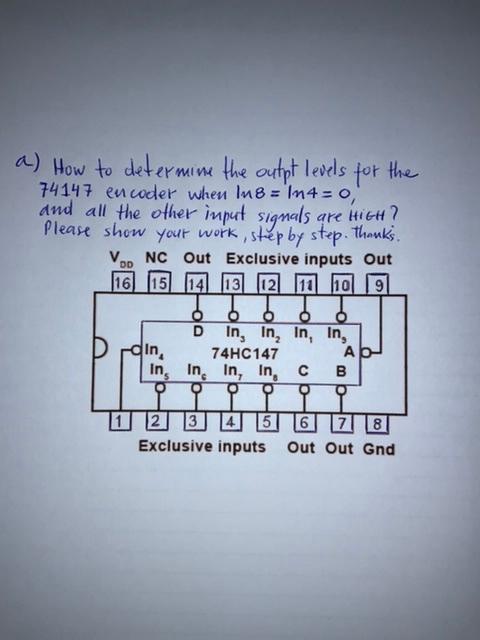 a) How to determine the outpt levels for the
74147 encoder when In8 = In4 = 0,
and all the other input signals are HIGH?
Please show your work, step by step. Thanks.
VDD NC Out Exclusive inputs Out
16 15 14 13 12 11 10 9
D In3 In2 In1 In9
In4 74HC147 A
In5 In6 In7 In8 C B
1 2 3 4 5 6 7 8
Exclusive inputs Out Out Gnd